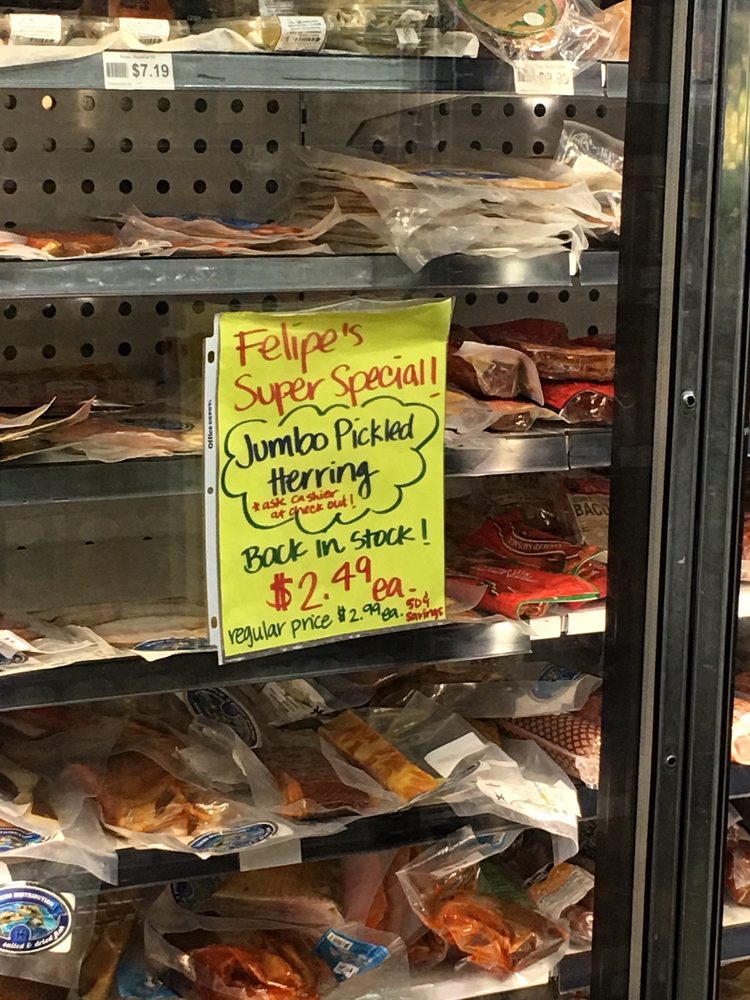 $7.19
Felipe's
Super Special!
Jumbo Pickled
Herring
*ask cashier
at check out!
Back in stock!
$2.49 ea.
regular price $2.99 ea. 50¢
savings
Office DEPOT
BACO
DISTRIBUTION
salted & dried fish